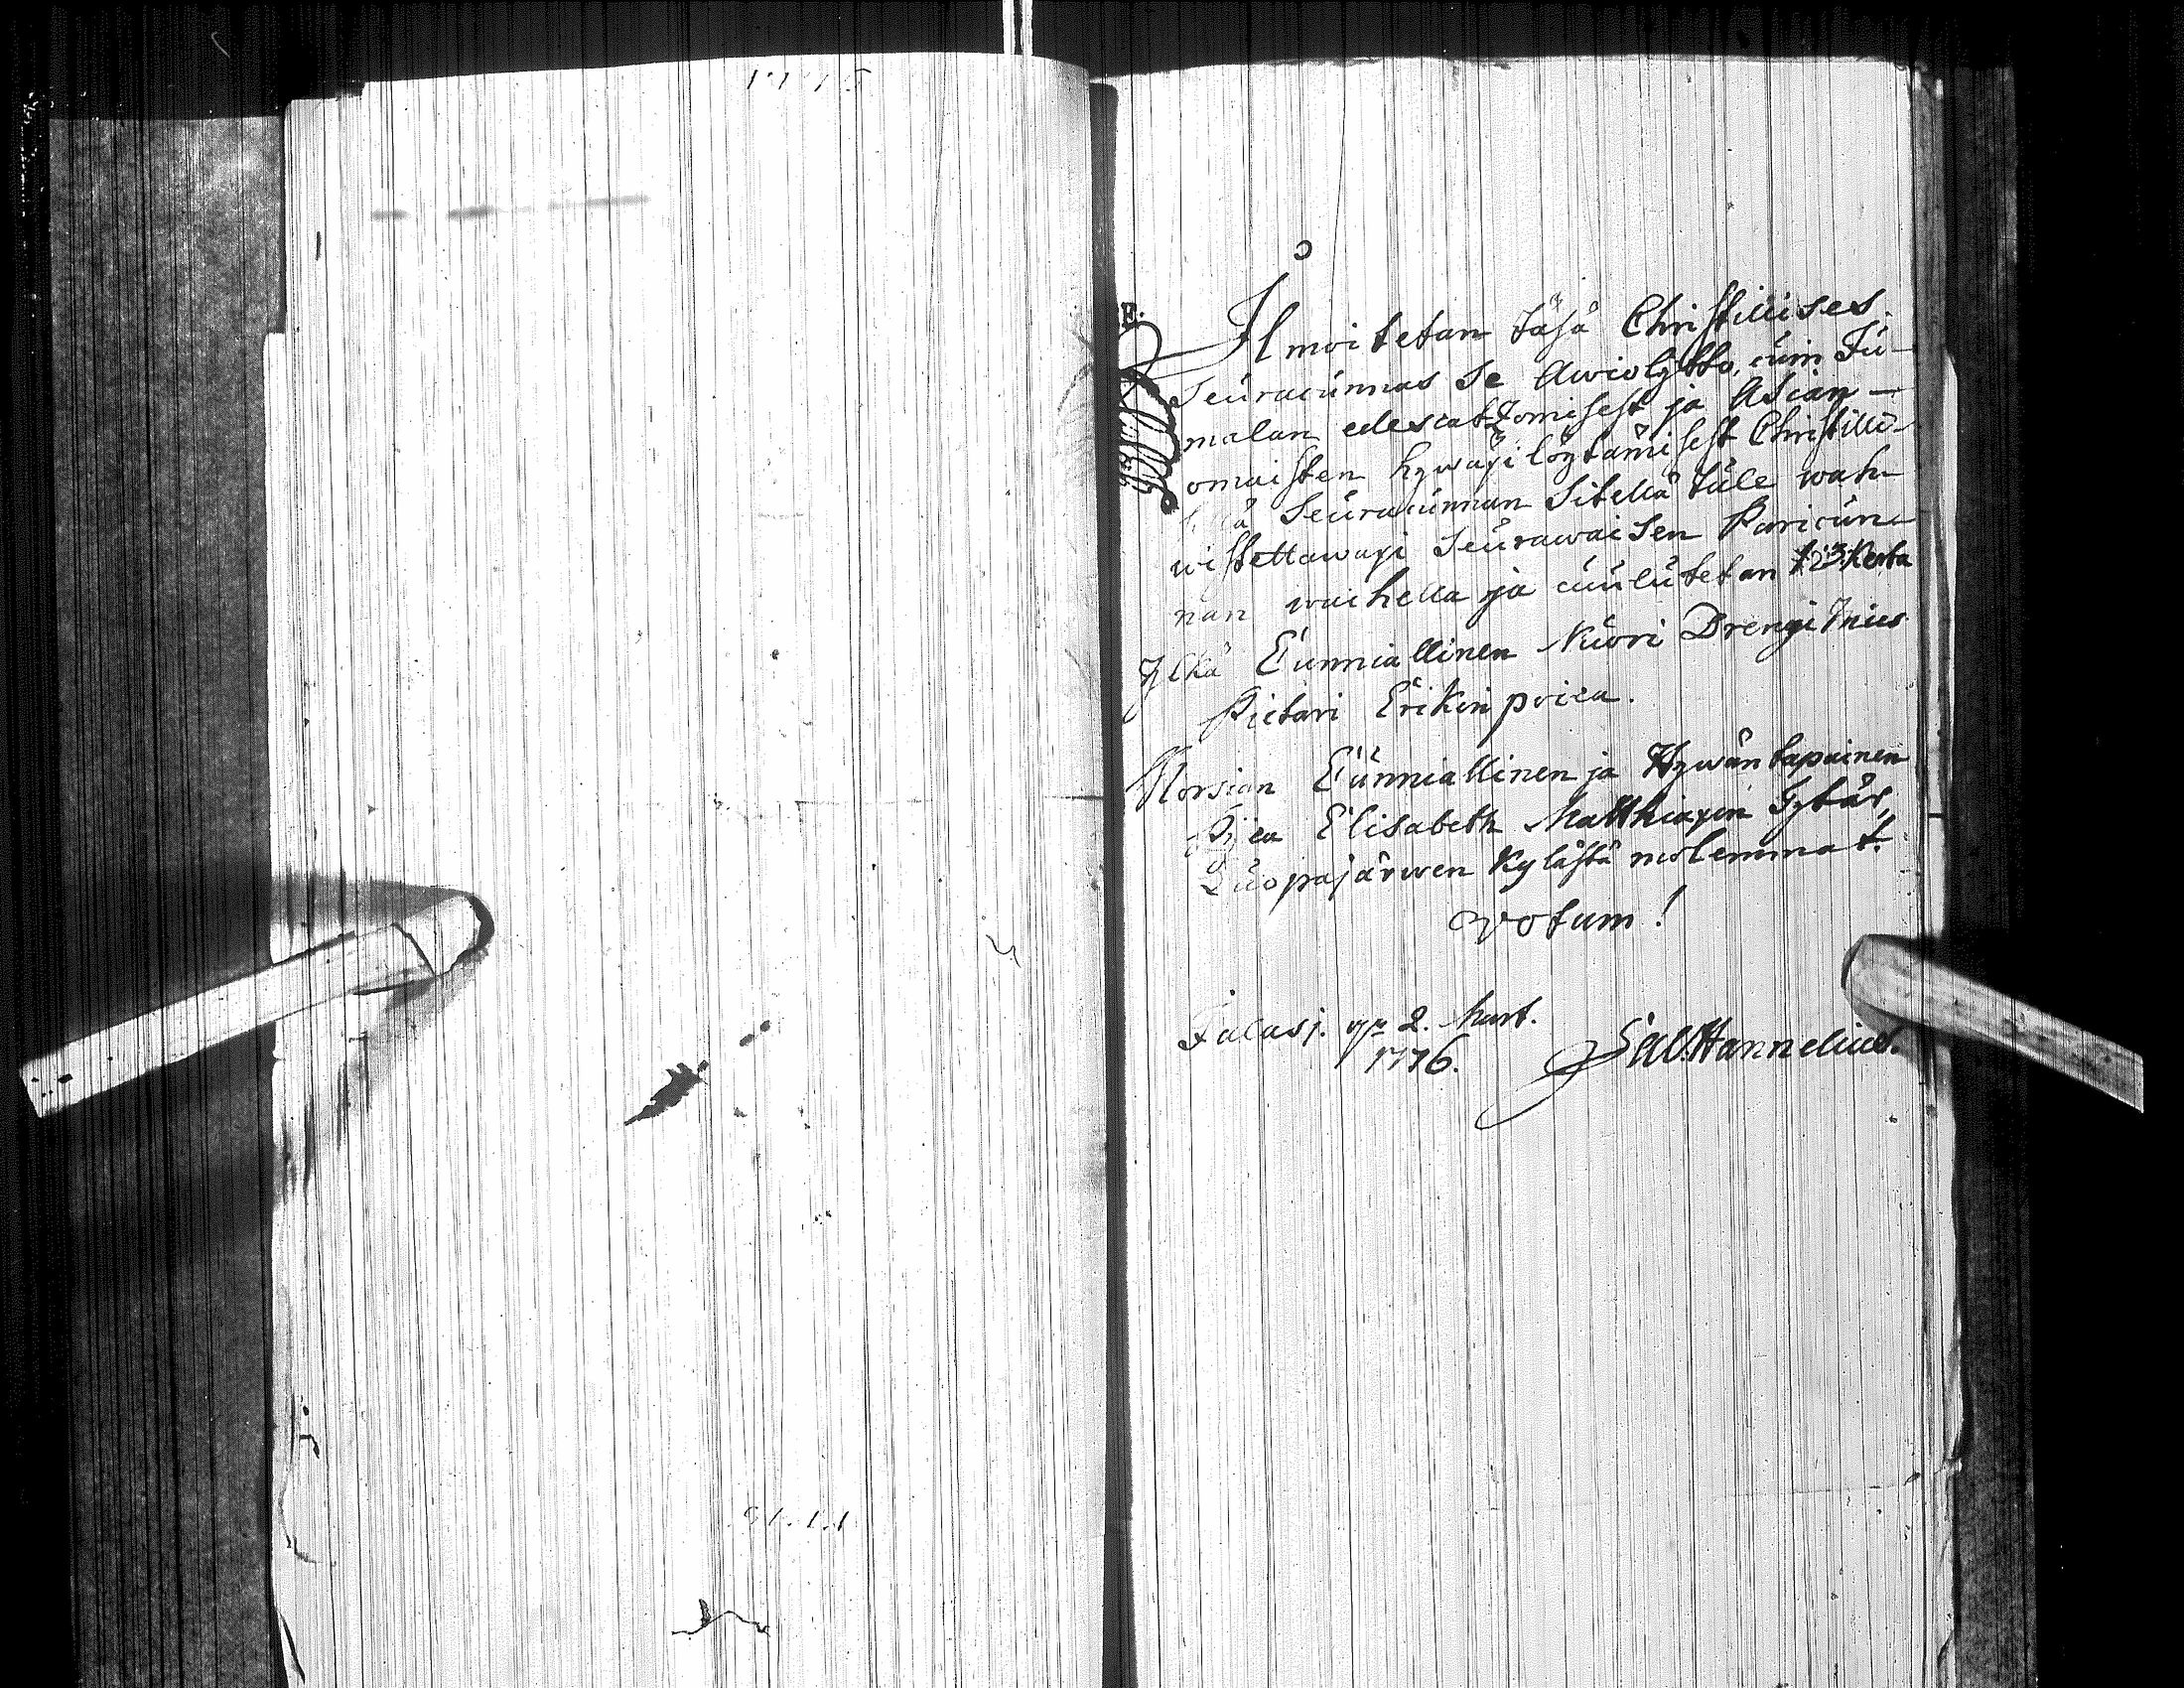 Ilmoitetan täsä Christillises
Seuracunnas se Awioljtto, cuin Ju-
malan edescatzomisest ja Asian-
omaisten hywäxi löytämisest Christilli-
Seuracunnan Sitellä tule wah-
wistettawaxi Seurawaisen Paricun-
nan waihella ja cuulutetan 1.2.3. Kerta
Yljkä Cunniallinen Nuori Drengi Mies
Pietari Erikin poica.
Morsian Cunniallinen ja Hywäntapainen
Pijca Elisabeth Matthiaxen Tytär,
Luopajärwen Kylästä molemmat.
votum!
Jalasj. 2. Mart.
1776. Hannelius.